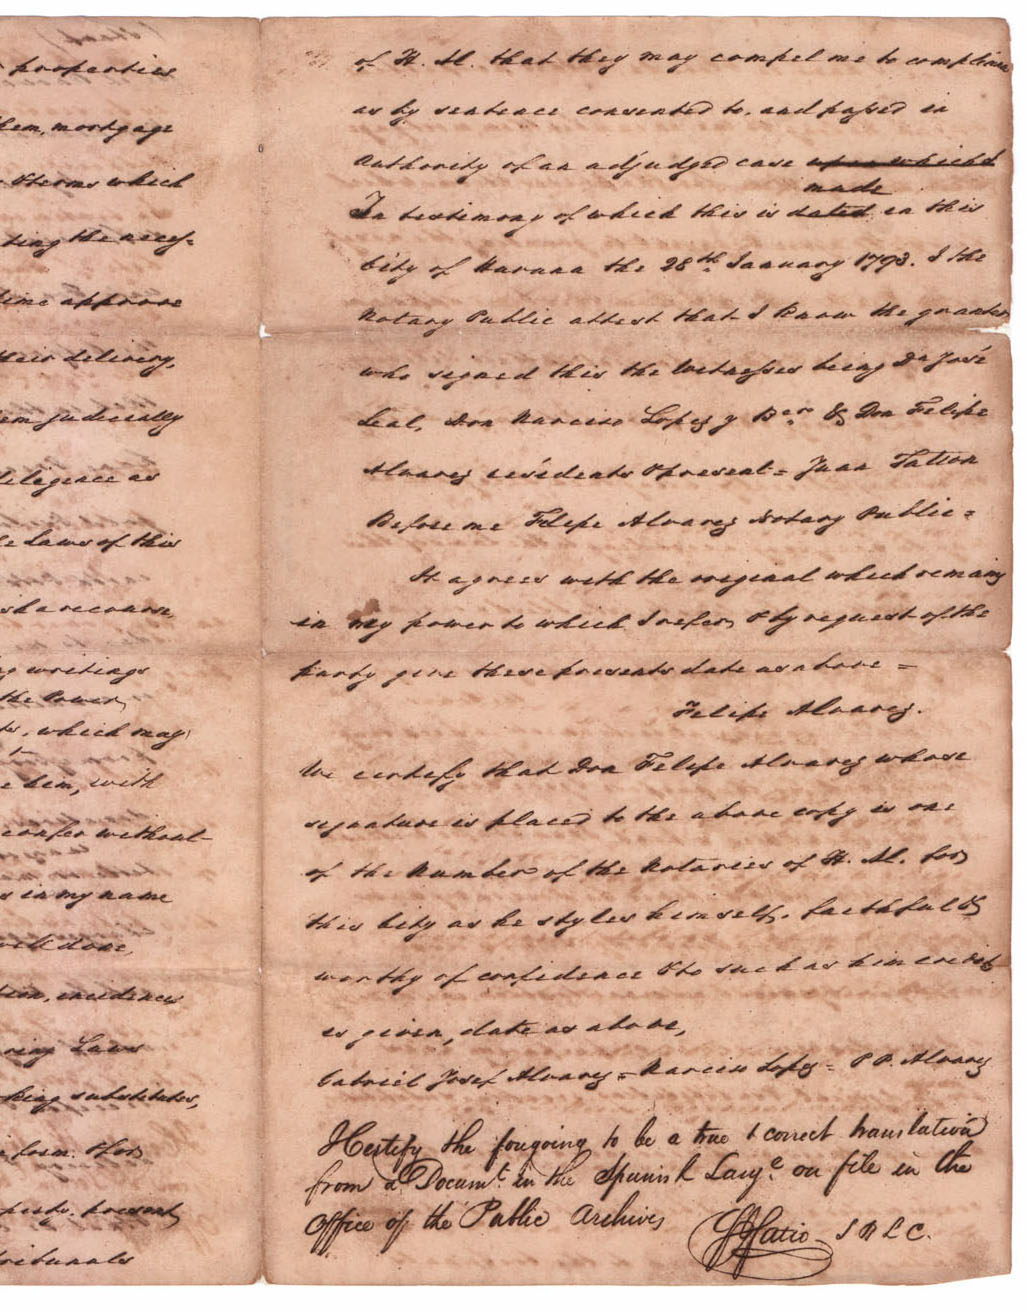 properties
hem, mortgage
& terms which
ting the neces-
time approve
their delivery,
em judicially
diligence as
e Laws of this
sh a recourse,
ng writings
the Power,
which may
e him, with
confer without
s in my name
well done,
tion, incidences
ring Laws
king substitutes,
form. & for
present
Tribunals
of H. M. that they may compel me to complian
as by sentence consented to, and passed in
Authority of an adjudged case upon which
made
In testimony of which this is dated in this
City of Havana the 28th. January 1793. I the
Notary Public attest that I know the grantor
who signed this the Witnesses being Dn José
Leal, Don Narciso Lopez y Ber & Don Felipe
Alvarez residents & present = Juan Tatson
Before me Felipe Alvarez Notary Public =
It agrees with the original which remains
in my power to which I refer, & by request of the
party give these presents date as above =
Felipe Alvarez.
We certify that Don Felipe Alvarez whose
signature is placed to the above copy is one
of the Number of the Notaries of H. M. for
this City as he styles himself, faithful &
worthy of confidence & to such as him credit
is given, date as above,
Gabriel Josef Alvarez = Narciso Lopez = P. P. Alvarez
I Certify the forgoing to be a true & correct translation
from a Documt. in the Spanish Lange. on file in the
Office of the Public Archives
FJFatio S B L C.